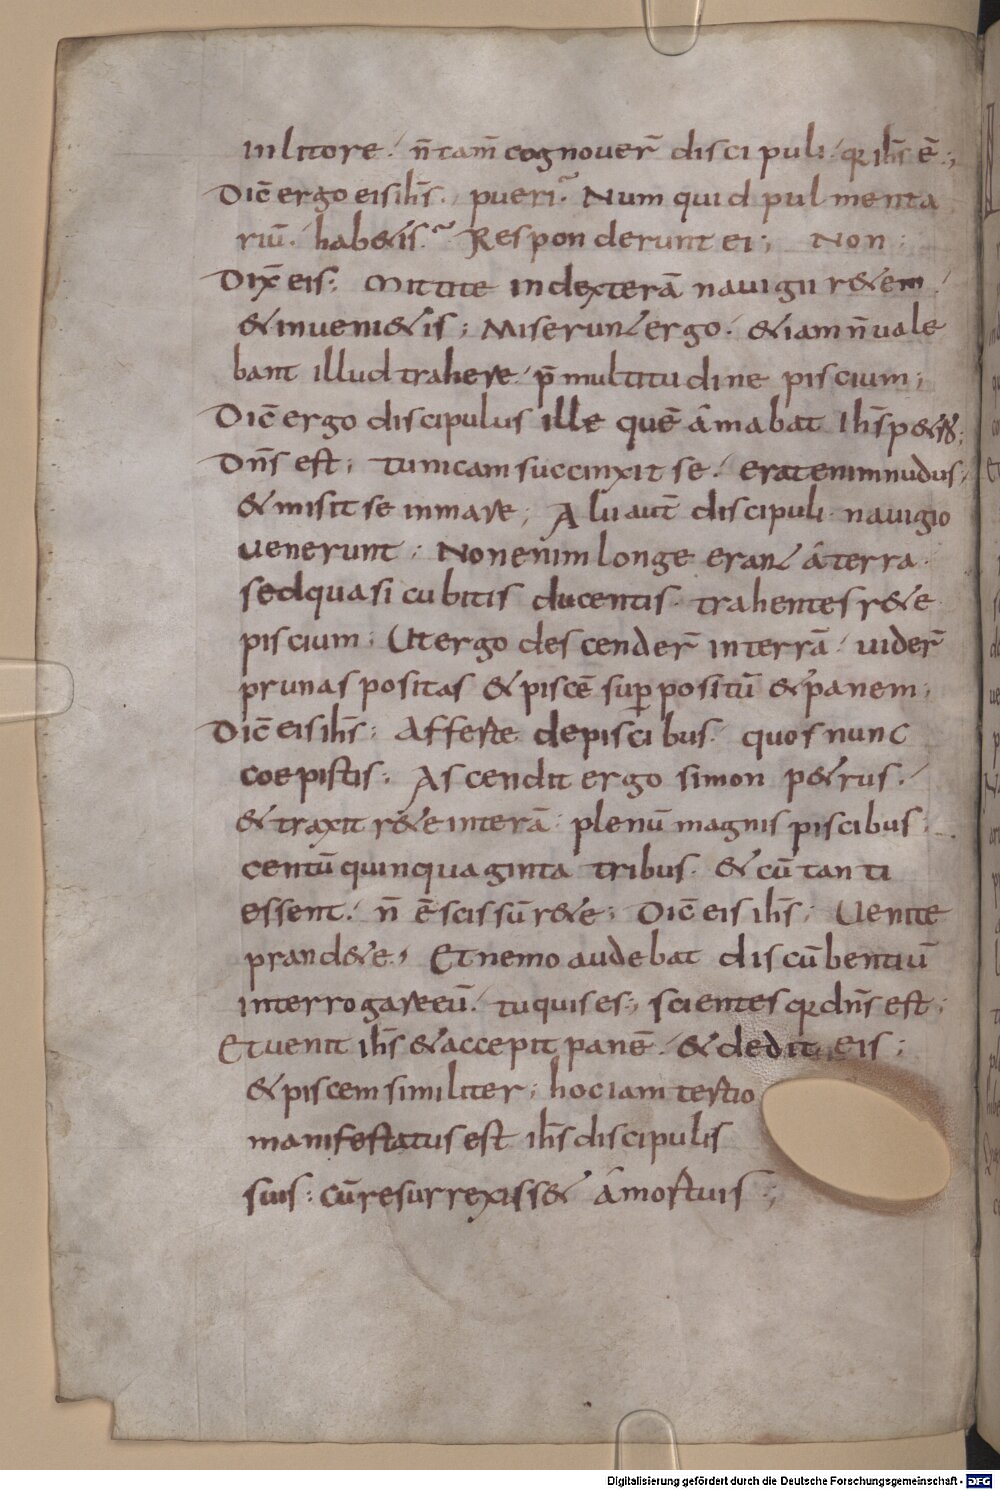 In litore. n̄ tam̄ cognouer̄ discipuli. qꝛ ih̄s ē.;
Dic̄ ergo eis ih̄s. pueri. Numquid pulmenta
riū. hab&is. Responderunt ei; Non;
Dix̄ eis; Mittite in dexterā nauigii r&em.
& inueni&is; Miserunt ergo. & iam n̄ uale
bant illud trahere. p̄ multitudine piscium;
Dic̄ ergo discipulus ille quē âmabat Ih̄s p&ro;
Dn̄s est; tunicam succinxit se. erat enim nudus;
& misit se in mare; Alii aut̄ discipuli nauigio
uenerunt; Non enim longe erant â terra.
sed quasi cubitis ducentis. trahentes r&e
piscium; Ut ergo descender̄ in terrā. uider̄
prunas positas & piscē suꝑ positū & panem;
Dic̄ eis ih̄s; Afferte de piscibus. quos nunc
coepistis; Ascendit ergo simon p&rus.
& traxit r&e in terā. plenū magnis piscibus.
centū quinquaginta tribus. & cū tanti
essent. n̄ ē scissū r&e; Dic̄ eis ih̄s; Uenite
prand&e; Et nemo audebat discūbentiū
interrogare eū. tu quis es; scientes qꝛ dn̄s est;
Et uenit ih̄s & accepit panē. & dedit eis;
& piscem similiter; hoc iam tertio
manifestatus est ih̄s discipulis
suis; cū resurrexiss& â mortuis;
Digitalisierung gefördert durch die Deutsche Forschungsgemeinschaft - DFG